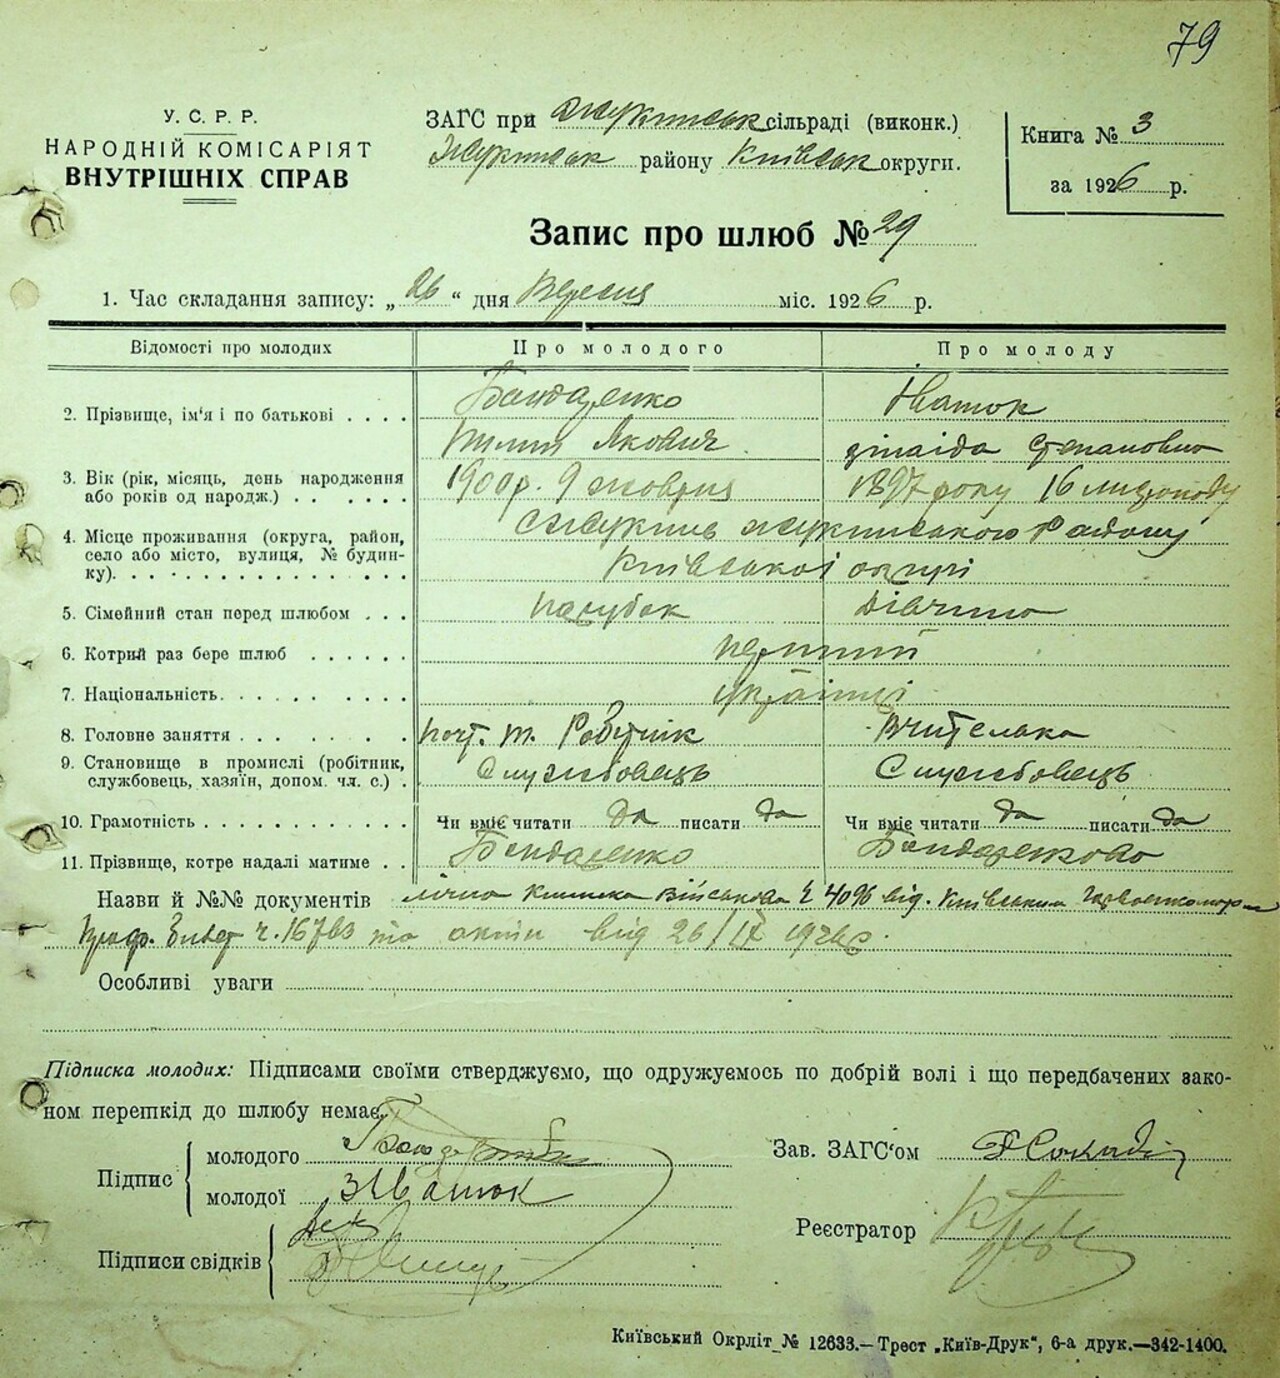 79
У. С. Р. Р.
НАРОДНІЙ КОМІСАРІЯТ
ВНУТРІШНІХ СПРАВ
ЗАГС при Жукинськ сільраді (виконк.)
Жукинськ району Київськ округи.
Книга № 3
за 1926 р.
Запис про шлюб № 29
1. Час складання запису: „ 26 “ дня Вересня міс. 1926 р.
Відомості про молодих Про молодого Про молоду
2. Прізвище, ім'я і по батькові . . . . Бондаренко Іватюк
Якович зінаїда Степановна
3. Вік (рік, місяць, день народження 1900р. 9 жовтня 1897 року 16 листопаду
або років од народж.) . . . . . .
4. Місце проживання (округа, район, с Жукинь жукинського Району
село або місто, вулиця, № будин- Київської округи
ку). . . . . . . . . . . . . . .
5. Сімейний стан перед шлюбом . . . парубок дівчина
6. Котрий раз бере шлюб . . . . . . перший
7. Національність. . . . . . . . . українці
8. Головне заняття . . . . . . . . . почт. т. Робітнік Вчителька
9. Становище в промислі (робітник, Службовець Службовець
службовець, хазяїн, допом. чл. с.) .
10. Грамотність . . . . . . . . . . . . Чи вміє читати да писати да Чи вміє читати да писати да
11. Прізвище, котре надалі матиме . . Бондаренко Бондаренкова
Назви й №№ документів книжка Військова ч 4096 від. Київським
Проф. Білет ч. 16783 та акти від 26/IX 1926р.
Особливі уваги
Підписка молодих: Підписами своїми стверджуємо, що одружуємось по добрій волі і що передбачених зако-
ном перешкід до шлюбу немає.
Підпис
молодого
молодої З Іватюк
Підписи свідків
Зав. ЗАГС'ом
Реєстратор
Київський Окрліт № 12633.— Трест „Київ-Друк“, 6-а друк.—342-1400.